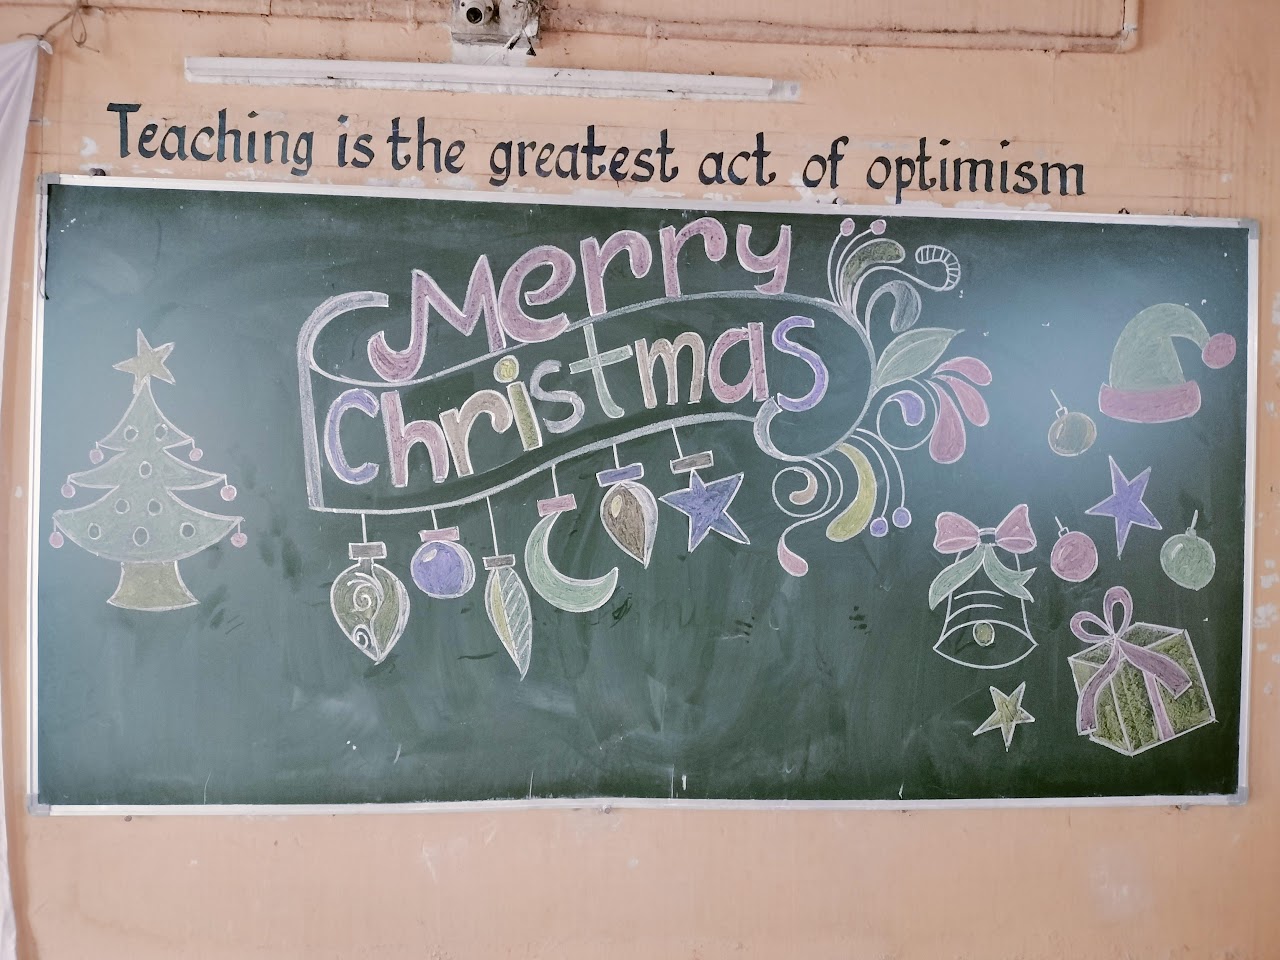 Teaching is the greatest act of optimism
Merry
Christmas